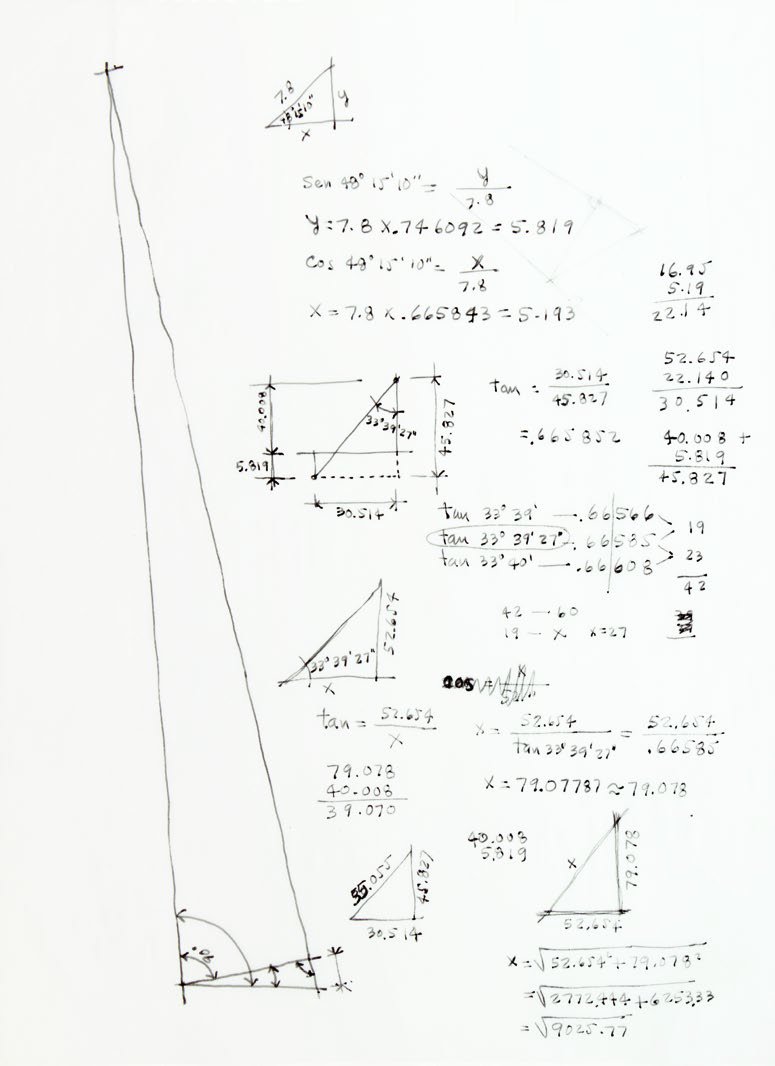 7.8
48°15'10"
y
x
Sen 48° 15' 10" = y / 7.8
y = 7.8 x .746092 = 5.819
Cos 48° 15' 10" = x / 7.8
x = 7.8 x .665843 = 5.193
16.95
5.19
22.14
52.654
22.140
30.514
40.008
5.819
33°39'27"
45.827
30.514
tan = 30.514 / 45.827
= .665852
40.008 +
5.819
45.827
tan 33° 39' — .66566
tan 33° 39' 27" — .66585
tan 33° 40' — .66608
19
23
42
42 — 60
19 — x x=27
52.654
33° 39' 27"
x
cos = x
tan = 52.654 / x
x = 52.654 / tan 33° 39' 27" = 52.654 / .66585
x = 79.07787 ≈ 79.078
79.078
40.008
39.070
40.008
5.819
55.055
45.827
30.514
x
79.078
52.654
x = √52.654² + 79.078²
= √2772.444 + 6253.33
= √9025.77
90°